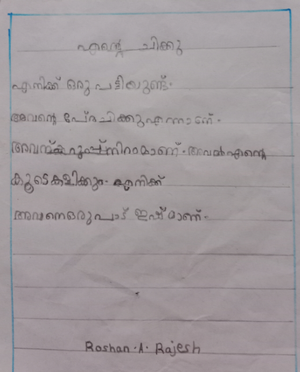 എന്റെ ചിക്കു
എനിക്ക് ഒരു പട്ടിയുണ്ട്.
അവന്റെ പേര് ചിക്കു എന്നാണ്.
അവന് കറുപ്പ് നിറമാണ്. അവൻ എന്റെ
കൂടെ കളിക്കും. എനിക്ക്
അവനെ ഒരുപാട് ഇഷ്ടമാണ്.
Roshan .A. Rajesh